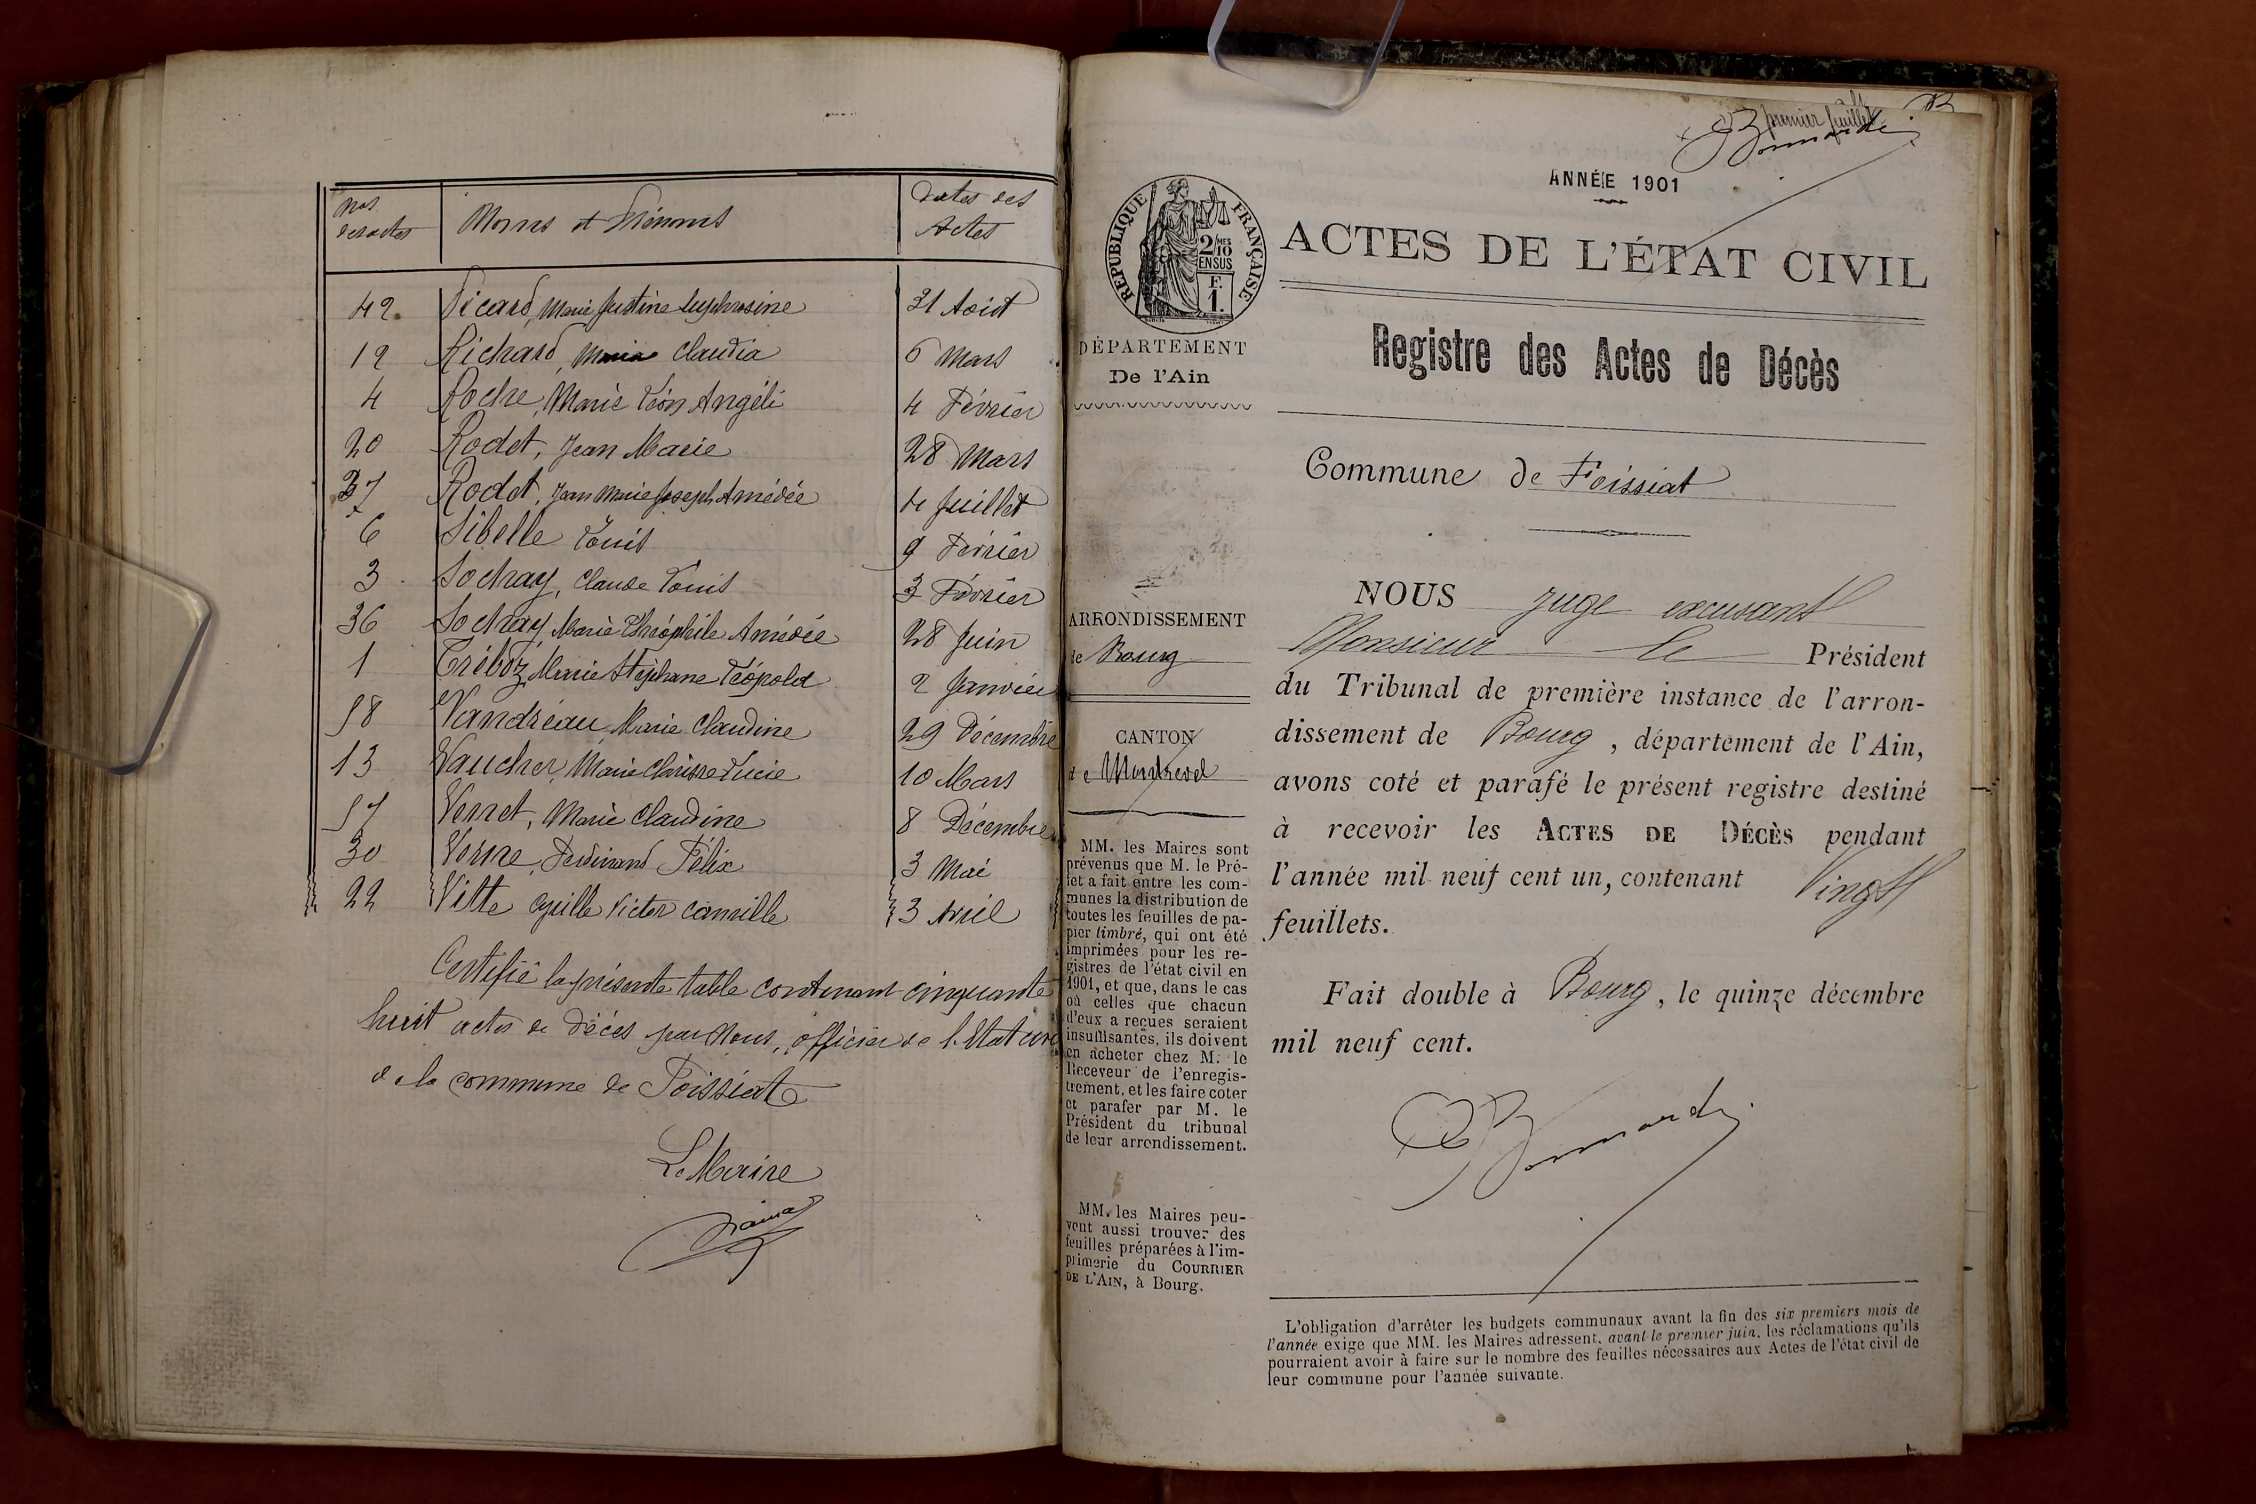 Nos des actes | Noms et Prénoms | Dates des Actes
42. Picard, Marie Justine Euphrosine 31 Août
12 Richard, Marie Claudia 6 Mars
4 Roche, Marie Léon Angéli 4 Février
20 Rodet, Jean Marie 28 Mars
37 Rodet, Jean Marie Joseph Amédée 4 Juillet
6 Sibelle Louis 9 Février
3 Sochay, Claude Louis 3 Février
36 Sochay, Marie Théophile Amédée 28 Juin
1 Tréboz, Marie Stéphane Léopold 2 Janvier
58 Vandréau Marie Claudine 29 Décembre
13 Vaucher, Marie Clarisse Lucie 10 Mars
57 Verret, Marie Claudine 8 Décembre
30 Verne, Ferdinand Félix 3 Mai
22 Vitte Cyrille Victor Camille 3 Avril
Certifié la présente table contenant cinquante
huit actes de décès par Nous, officier de l'Etat civil
de la commune de Foissiat
Le Maire
premier feuillet
ANNÉE 1901
ACTES DE L'ÉTAT CIVIL
Registre des Actes de Décès
Commune de Foissiat
RÉPUBLIQUE FRANÇAISE
2/10 MES
EN SUS
F.
1.
DÉPARTEMENT
De l'Ain
ARRONDISSEMENT
de Bourg
CANTON
de Montrevel
MM. les Maires sont
prévenus que M. le Pré-
fet a fait entre les com-
munes la distribution de
toutes les feuilles de pa-
pier timbré, qui ont été
imprimées pour les re-
gistres de l'état civil en
1901, et que, dans le cas
où celles que chacun
d'eux a reçues seraient
insuffisantes, ils doivent
en acheter chez M. le
Receveur de l'enregis-
trement, et les faire coter
et parafer par M. le
Président du tribunal
de leur arrondissement.
MM. les Maires peu-
vent aussi trouver des
feuilles préparées à l'im-
primerie du COURRIER
DE L'AIN, à Bourg.
NOUS juge excusant
Monsieur le Président
du Tribunal de première instance de l'arron-
dissement de Bourg, département de l'Ain,
avons coté et parafé le présent registre destiné
à recevoir les ACTES DE DÉCÈS pendant
l'année mil neuf cent un, contenant Vingt
feuillets.
Fait double à Bourg, le quinze décembre
mil neuf cent.
L'obligation d'arrêter les budgets communaux avant la fin des six premiers mois de
l'année exige que MM. les Maires adressent, avant le premier juin, les réclamations qu'ils
pourraient avoir à faire sur le nombre des feuilles nécessaires aux Actes de l'état civil de
leur commune pour l'année suivante.